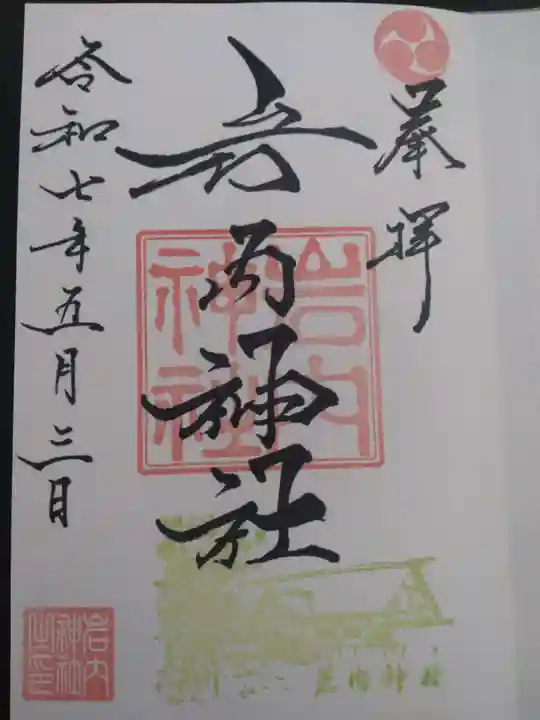 奉拝
岩内神社
岩内
神社
令和七年五月三日
岩内
神社
岩内神社